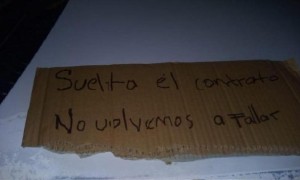 Suelto él contrato
No volvemos a Fallar